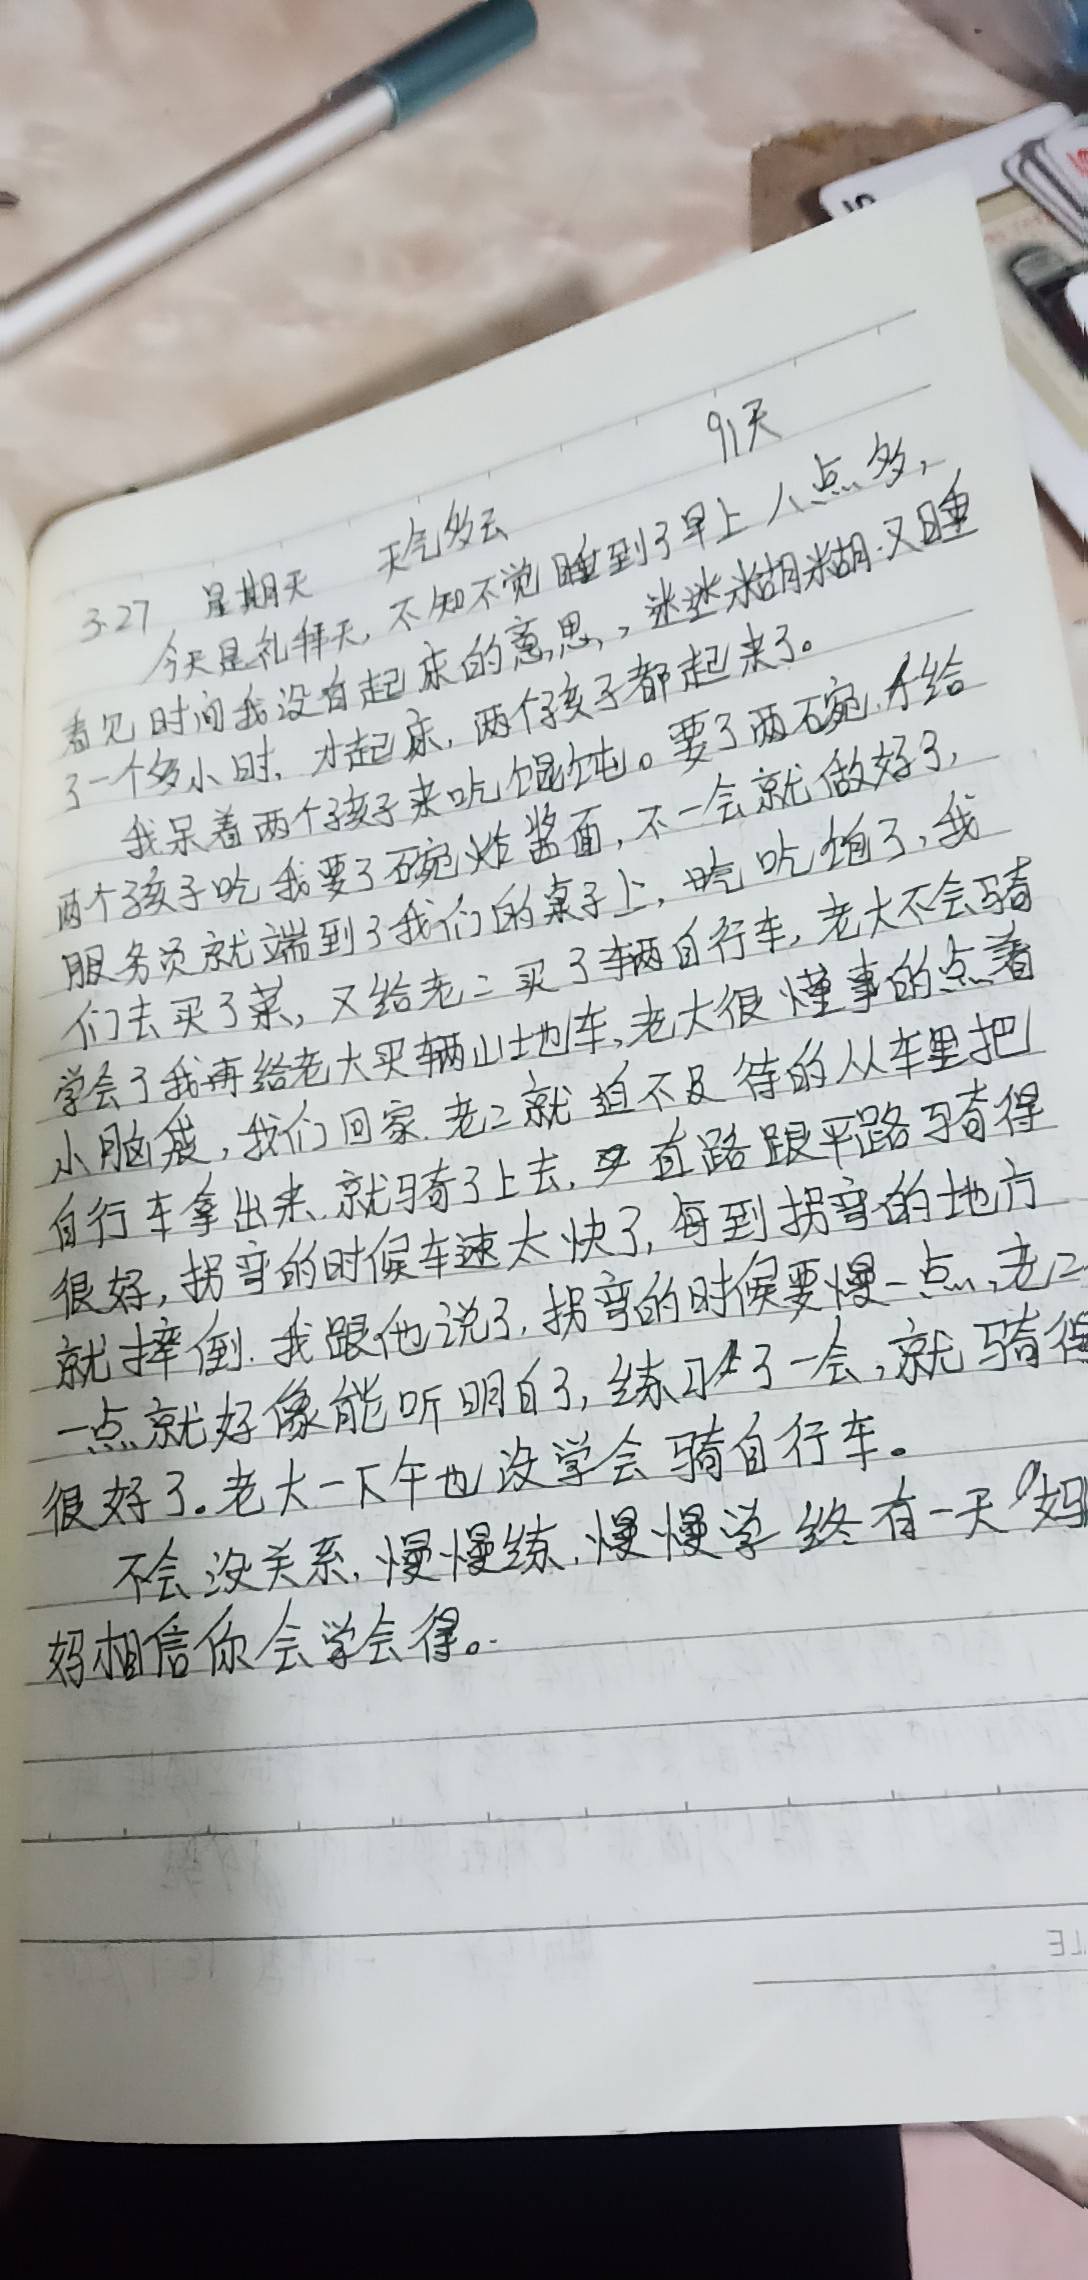 91天
3.27 星期天 天气多云
今天是礼拜天,不知不觉睡到了早上八点多,
看见时间我没有起床的意思,迷迷糊糊又睡
了一个多小时,才起床,两个孩子都起来了。
我呆着两个孩子来吃馄饨。要了两碗,给
两个孩子吃我要了碗炸酱面,不一会就做好了,
服务员就端到了我们的桌子上,吃吃饱了,我
们去买了菜,又给老二买了辆自行车,老大不会骑
学会了我再给老大买辆山地车,老大很懂事的点着
小脑袋,我们回家.老二就迫不及待的从车里把
自行车拿出来.就骑了上去,直路跟平路骑得
很好,拐弯的时候车速太快了,每到拐弯的地方
就摔倒.我跟他说了,拐弯的时候要慢一点,老二
一点就好像能听明白了,练习了一会,就骑得
很好了.老大一下午也没学会骑自行车。
不会没关系.慢慢练,慢慢学终有一天妈
妈相信你会学会得。